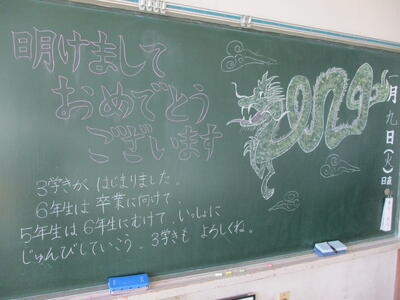 明けまして
おめでとう
ございます
3学きが はじまりました。
6年生は 卒業に向けて。
5年生は6年生にむけて。いっしょに
じゅんびしていこう。3学きも よろしくね。
一月九日(火)
日直